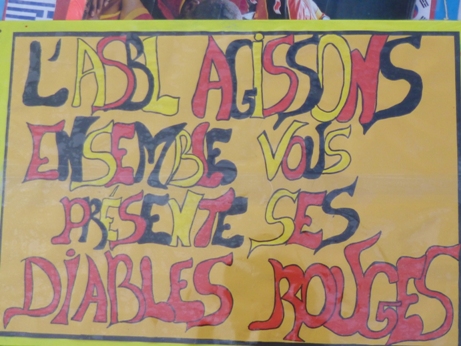 L'ASBL AGISSONS
ENSEMBLE VOUS
PRÉSENTE SES
DIABLES ROUGES